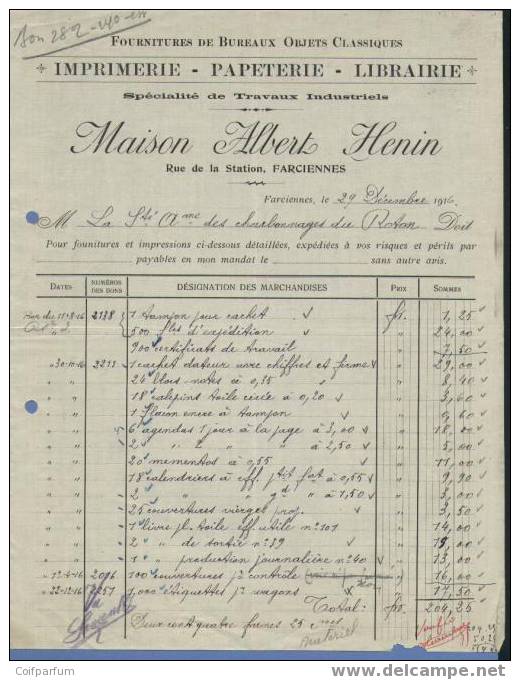 Bon 282-240-
FOURNITURES DE BUREAUX OBJETS CLASSIQUES
IMPRIMERIE - PAPETERIE - LIBRAIRIE
Spécialité de Travaux Industriels
Maison Albert Henin
Rue de la Station, FARCIENNES
Farciennes, le 29 Décembre 1916
M La Sté Ame des charbonnages du Roton Doit
Pour founitures et impressions ci-dessous détaillées, expédiées à vos risques et périls par
payables en mon mandat le sans autre avis.
DATES NUMÉROS DES BONS DÉSIGNATION DES MARCHANDISES PRIX SOMMES
Bon du 11-8-16 2138 1 tampon pour cachet fr. 1,25
500 flles d'expédition " 24,00
900 certificats de travail " 7,50
" 30-10-16 2211 1 cachet dateur avec chiffres et ferme " 29,00
" " 24 blocs notes à 0,35 " 8,40
" " 18 calepins toile cirée à 0,20 " 3,60
" " 1 flacon encre à tampon " 0,60
" " 6 agendas 1 jour à la page à 3,00 " 18,00
" " 2 " 2 " " à 2,50 " 5,00
" " 20 mementos à 0,55 " 11,00
" " 18 calendriers à eff. ptit fat à 0,55 " 9,90
" " 2 " " gd " à 1,50 " 3,00
" " 25 couvertures vierges " 3,50
" " 1 livre pl. toile eff. utile no 101 " 14,00
" " 2 " de sortie no 39 " 15,00
" " 1 " production journalière no 40 " 13,00
2096 100 couvertures pr contrôle " 16,00
" 22-12-16 2257 1,000 étiquettes pr wagons " 17,50
Total: fr. 204,25
Deux cent quatre francs 25 cmes
matériel
Coifparfum
www.delcampe.net